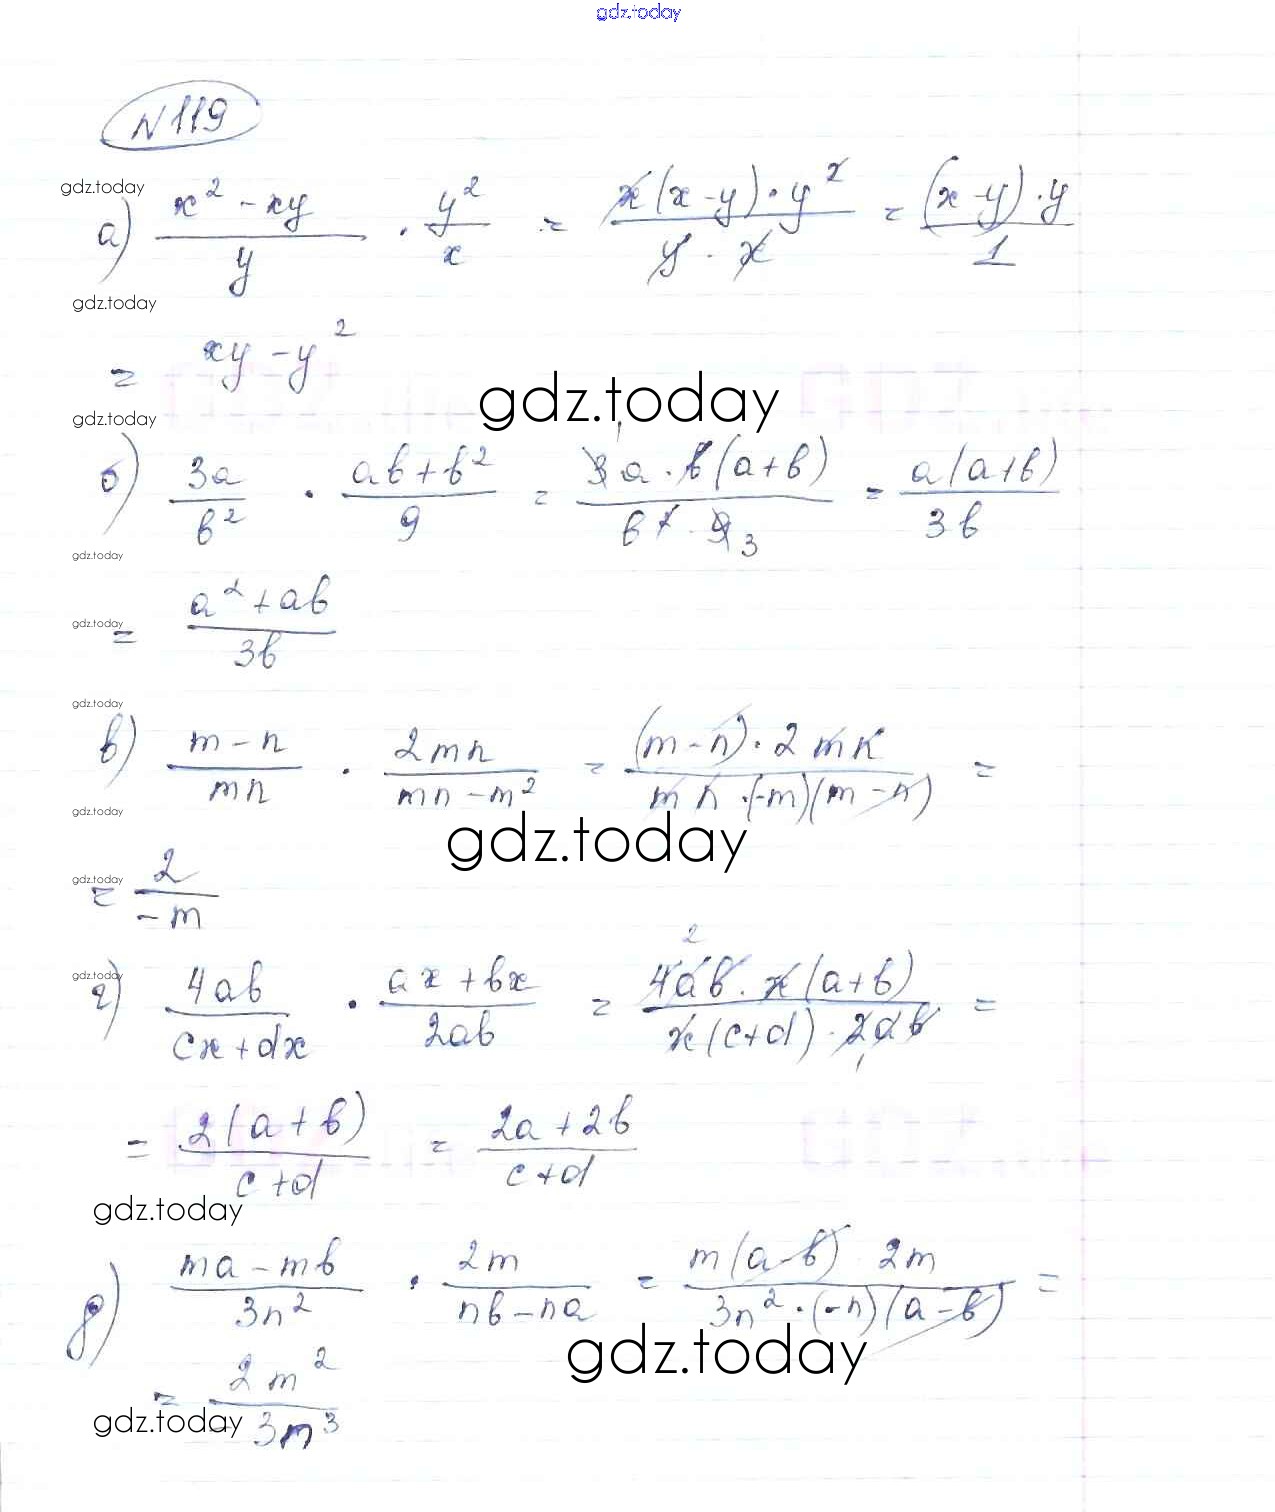 gdz.today
N119
gdz.today
а) (x² - xy)/y · y²/x = (x(x-y)·y²)/(y·x) = ((x-y)·y)/1
gdz.today
= xy - y²
gdz.today
gdz.today
б) 3a/b² · (ab+b²)/9 = (3a·b(a+b))/(b²·9) = (a(a+b))/(3b)
1
3
gdz.today
= (a²+ab)/(3b)
gdz.today
gdz.today
в) (m-n)/(mn) · (2mn)/(mn-m²) = ((m-n)·2mn)/(mn·(-m)(m-n)) =
gdz.today
gdz.today
= 2/(-m)
gdz.today
г) (4ab)/(cx+dx) · (ax+bx)/(2ab) = (4ab·x(a+b))/(x(c+d)·2ab) =
2
1
gdz.today
= (2(a+b))/(c+d) = (2a+2b)/(c+d)
gdz.today
д) (ma-mb)/(3n²) · (2m)/(nb-na) = (m(a-b) 2m)/(3n²·(-n)(a-b)) =
gdz.today
= (2m²)/(3m³)
gdz.today